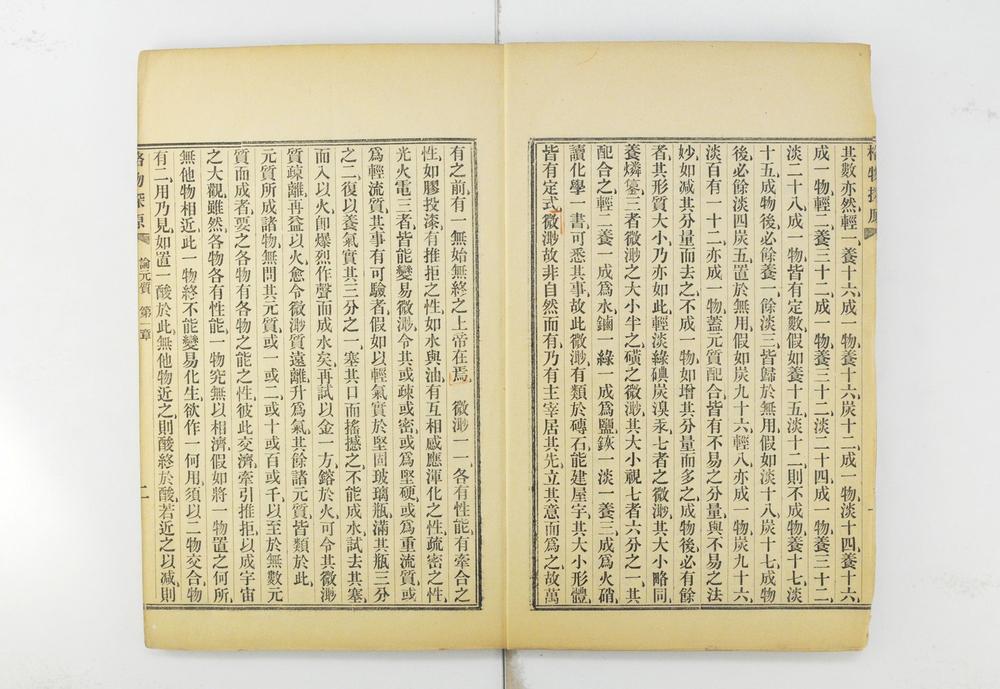 格物探原
其數亦然輕一養十六成一物養十六炭十二成一物淡十四養十六
成一物輕二養三十二成一物養三十二淡二十四成一物養三十二
淡二十八成一物皆有定數假如養十五淡十二則不成物養十七淡
十五成物後必餘養一餘淡三皆歸於無用假如淡十八炭十七成物
後必餘淡四炭五置於無用假如炭九十六輕八亦成一物炭九十六
淡百有一十二亦成一物蓋元質配合皆有不易之分量與不易之法
妙如減其分量而去之不成一物如增其分量而多之成物後必有餘
者其形質大小乃亦如此輕淡綠碘炭溴汞七者之微渺其大小略同
養燐𥔵三者微渺之大小半之磺之微渺其大小視七者六分之一其
配合之輕二養一成爲水鏀一綠一成爲鹽鈥一淡一養三成爲火硝
讀化學一書可悉其事故此微渺有類於磚石能建屋宇其大小形體
皆有定式微渺故非自然而有乃有主宰居其先立其意而爲之故萬
有之前有一無始無終之上帝在焉 微渺一一各有性能有牽合之
性如膠投漆有推拒之性如水與油有互相感應渾化之性疏密之性
光火電三者皆能變易微渺令其或疎或密或爲堅硬或爲重流質或
爲輕流質其事有可驗者假如以輕氣實於堅固玻璃瓶滿其瓶三分
之二復以養氣實其三分之一塞其口而搖撼之不能成水試去其塞
而入以火卽爆烈作聲而成水矣再試以金一方鎔於火可令其微渺
質疎離再益以火愈令微渺質遠離升爲氣其餘諸元質皆類於此
元質所成諸物無問其元質或一或二或十或百或千以至於無數元
質而成者要之各物有各物之能之性彼此交濟牽引推拒以成宇宙
之大觀雖然各物各有性能一物究無以相濟假如將一物置之何所
無他物相近此一物終不能變易化生欲作一何用須以二物交合物
有二用乃見如置一酸於此無他物近之則酸終於酸若近之以减則
格物探原 論元質 第一章 二